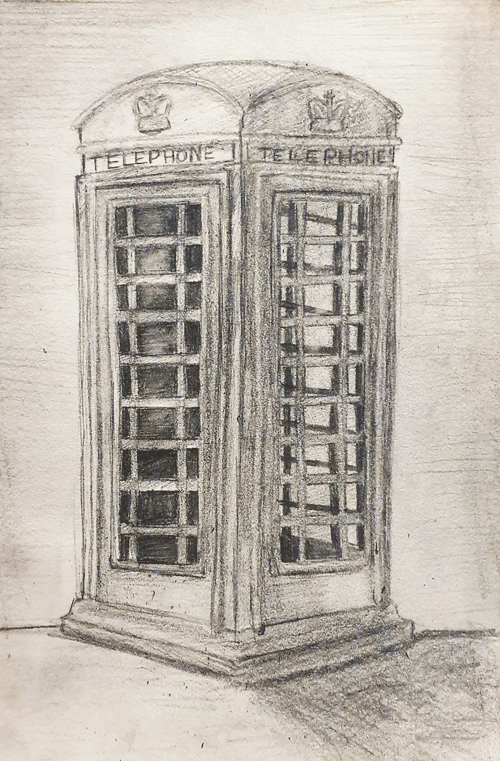 TELEPHONE
TELEPHONE